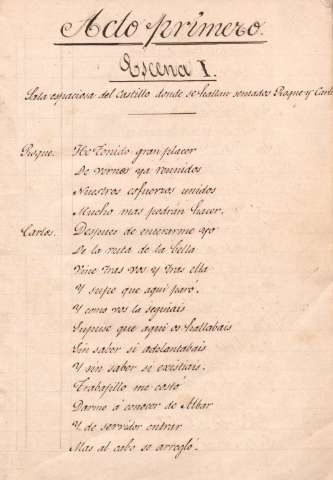 Acto primero.
Escena I.
Sala espaciosa del Castillo donde se hallan sentados Roque y Carlos
Roque. He tenido gran placer
De vernos ya reunidos
Nuestros esfuerzos unidos
Mucho mas podrán hacer.
Carlos. Despues de enterarme yo
De la ruta de la bella
Vine tras vos y tras ella
Y supe que aquí paró.
Y como vos la seguiais
Supuse que aqui os hallabais
Sin saber si adelantabais
Y sin saber si existiais.
Trabajillo me costó
Darme á conocer de Albar
Y de servidor entrar
Mas al cabo se arregló.